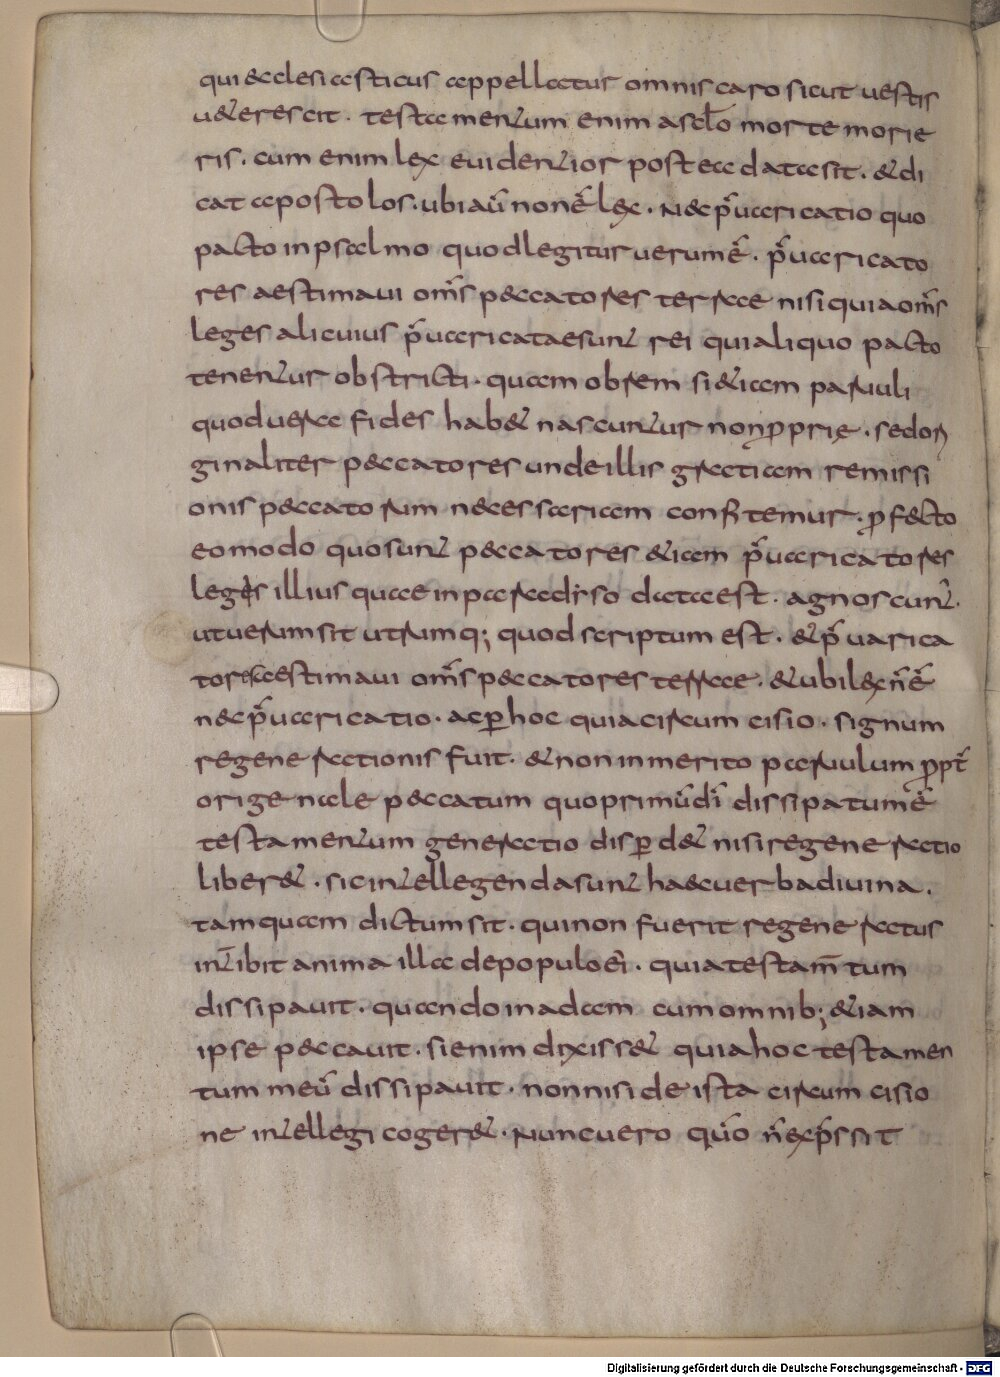 qui ecclesiasticus appellatur omnis caro sicut uestis
ueterescit . testamentum enim a sclo morte morie
ris . cum enim lex euidentior postea data sit . & di
cat apostolos . ubi aũ non ẽ lex . nec p̃uaricatio quo
pacto in psalmo quod legitur uerum ẽ . p̃uaricato
res aestimaui om̃s peccatores terrae nisi quia om̃s
leges alicuius p̃uaricatae sunt rei qui aliquo pacto
tenentur obstricti . quam obrem si &iam paruuli
quod uera fides hab& nascuntur non ꝓprie . sed ori
ginaliter peccatores unde illis gratiam remissi
onis peccatorum necessariam confitemur . ꝓfecto
eo modo quo sunt peccatores &iam p̃uaricatores
leges illius quae in paradiso data est . agnoscunt̃ .
ut uerum sit utrumq; quod scriptum est . & p̃uarica
tores aestimaui om̃s peccatores terrae . & ubi lex ñ ẽ
nec p̃uaricatio . ac ꝑ hoc quia circumcisio . signum
regenerationis fuit . & non inmerito paruulum ꝓpt̃
originale peccatum quo primũ dĩ dissipatum ẽ
testamentum generatio disꝑd& nisi regeneratio
liber& . sic intellegenda sunt haec uerba diuina .
tamquam dictum sit . qui non fuerit regeneratus
int̄ibit anima illa de populo eĩ . quia testam̄tum
dissipauit . quando in adam cum omnib; &iam
ipse peccauit . si enim dixiss& quia hoc testamen
tum meũ dissipauit . non nisi de ista circumcisio
ne intellegi coger& . Nunc uero qũo ñ exp̃ssit